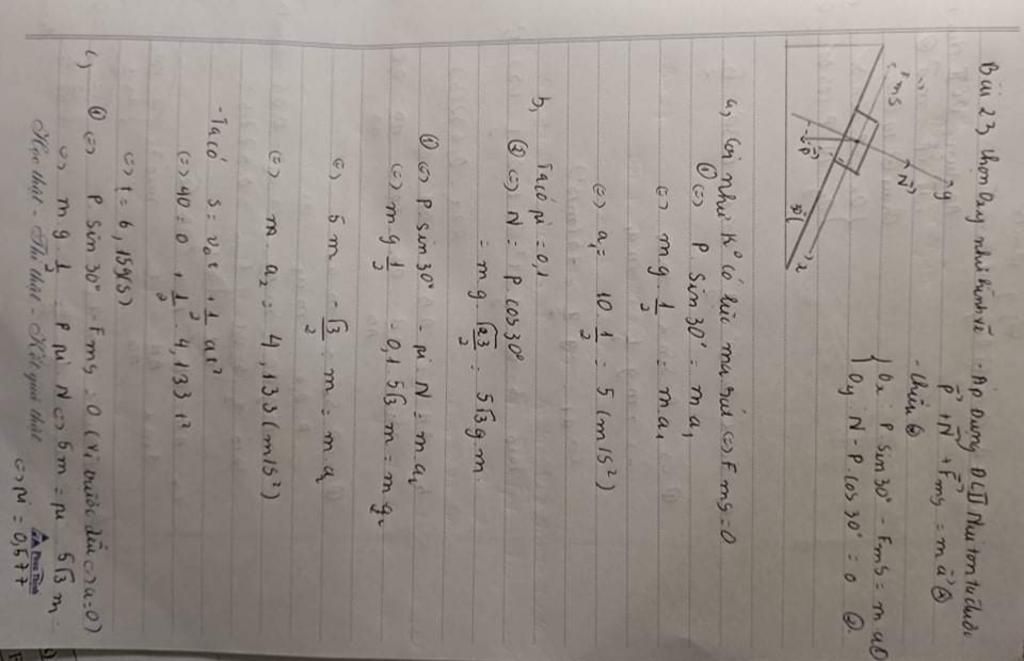 Bài 23, chọn Oxy như hình vẽ
- Áp dụng ĐLII Niu tơn ta được
P + N + Fms = m a (*)
- chiếu (*)
Ox : P sin 30° - Fms = m a (1)
Oy : N - P cos 30° = 0 (2)
y
N
Fms
P
30°
x
a, Coi như k° có lực ma sát <=> Fms = 0
(1) <=> P sin 30° = m a₁
<=> m g 1/2 = m a₁
<=> a₁ = 10 . 1/2 = 5 (m/s²)
b, Ta có μ = 0,1
(2) <=> N = P cos 30°
= m g √3/2 = 5√3 g m
(1) <=> P sin 30° - μ N = m a₂
<=> m g 1/2 - 0,1 5√3 m = m a₂
<=> 5 m - √3/2 m = m a₂
<=> m a₂ = 4,133 (m/s²)
- Ta có s = v₀t + 1/2 at²
<=> 40 = 0 + 1/2 . 4,133 t²
<=> t = 6,159 (s)
c, (1) <=> P sin 30° - Fms = 0 (Vì trượt đều <=> a = 0)
<=> m g 1/2 = μ N <=> 5 m = μ 5√3 m
<=> μ = 0,577
Học thật - Thi thật - Kết quả thật